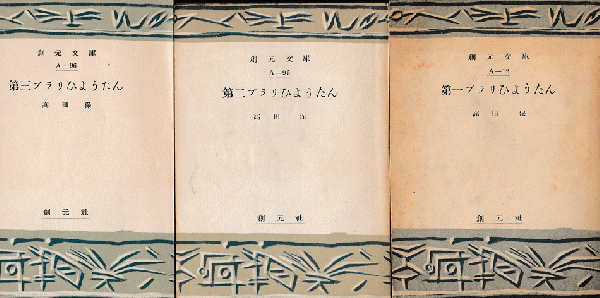 創元文庫
A—96
第三ブラリひようたん
高田保
創元社
創元文庫
A—95
第二ブラリひようたん
高田保
創元社
創元文庫
第一ブラリひようたん
高田保
創元社